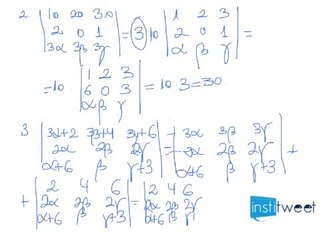 2. | 10 20 30 |
| 2 0 1 | = 3 10
| 3α 3β 3γ |
| 1 2 3 |
| 2 0 1 | =
| α β γ |
= 10 | 1 2 3 |
| 6 0 3 | = 10 3 = 30
| α β γ |
3 | 3α+2 3β+4 3γ+6 |
| 2α 2β 2γ | =
| α+6 β γ+3 |
| 3α 3β 3γ |
| 2α 2β 2γ | +
| α+6 β γ+3 |
+ | 2 4 6 |
| 2α 2β 2γ | =
| α+6 β γ+3 |
| 2 4 6 |
| 2α 2β 2γ |
| α+6 β γ |
institweet